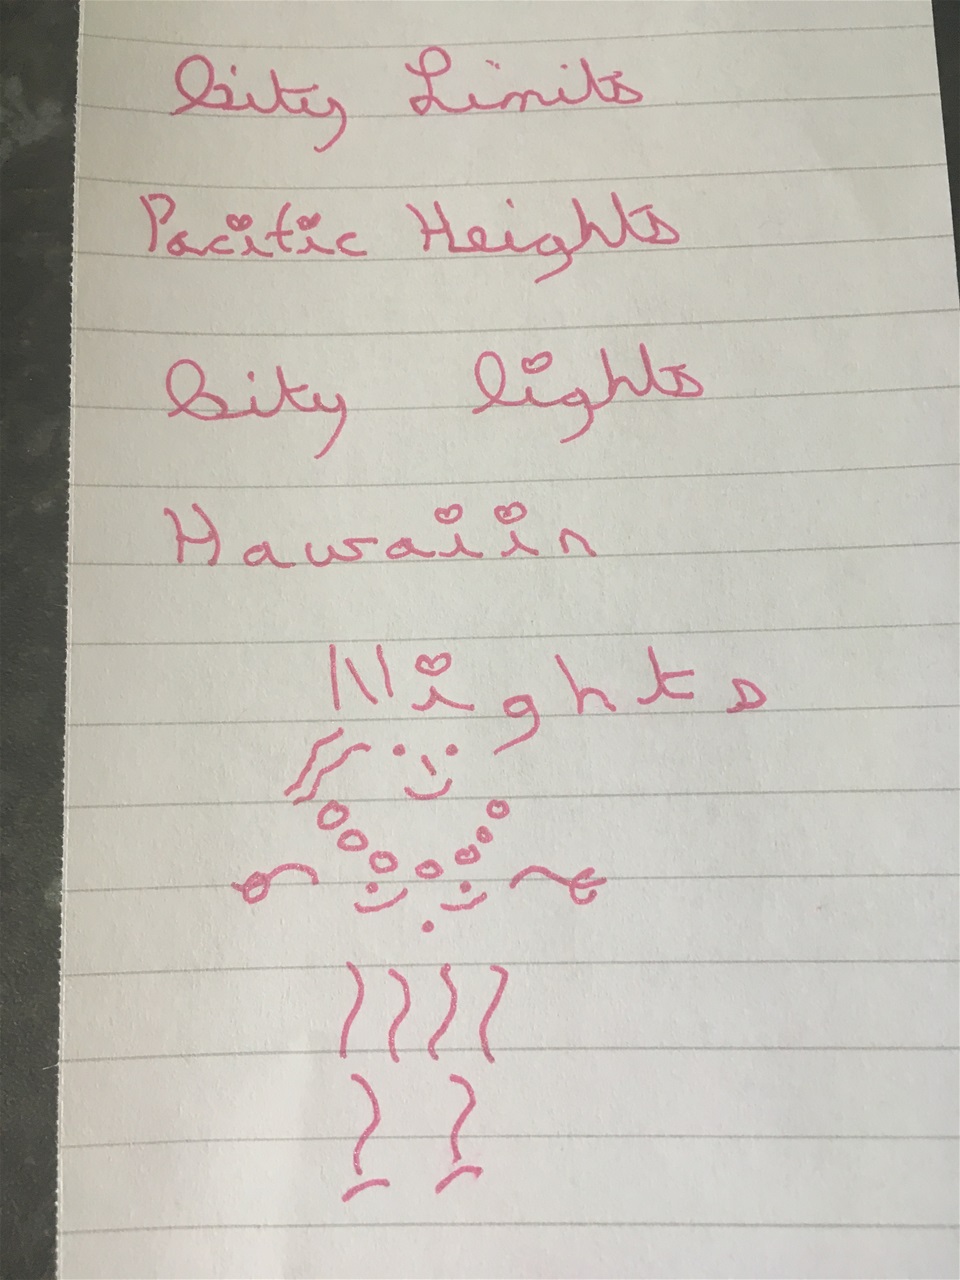 City Limits
Pacific Heights
City lights
Hawaiin
Nights